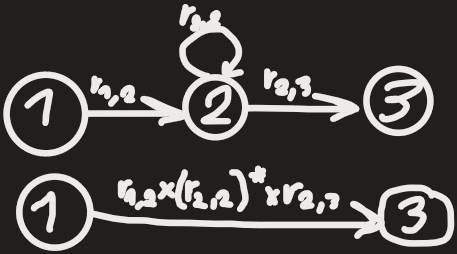 r₂,₂
1 r₁,₂ 2 r₂,₃ 3
r₁,₂×(r₂,₂)*×r₂,₃
1 3